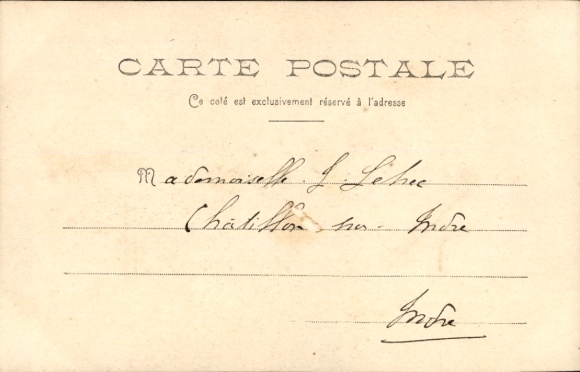 CARTE POSTALE
Ce coté est exclusivement réservé à l'adresse
Mademoiselle J.
Châtillon sur Indre
Indre